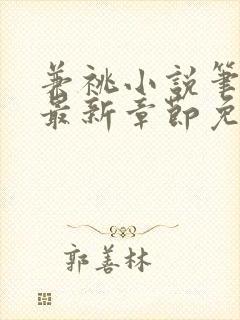 兼祧小説筆
最新章節免
郭善林